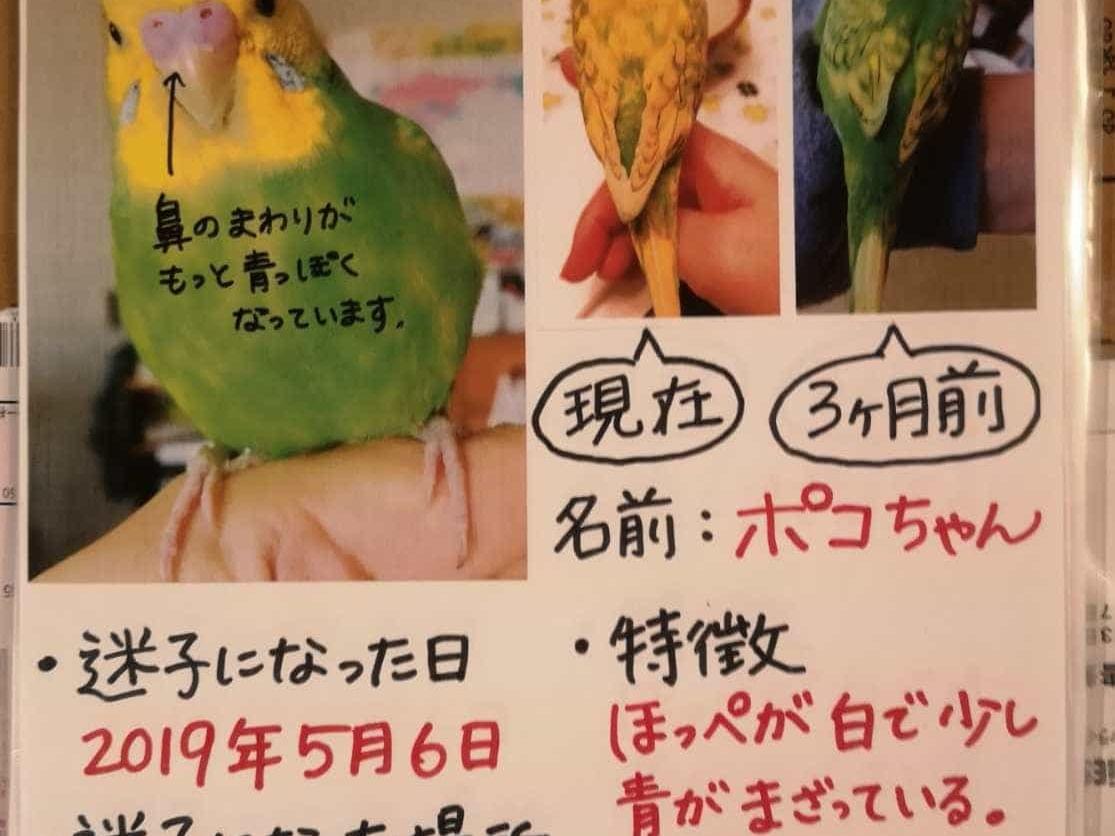 鼻のまわりが
もっと青っぽく
なっています。
現在
3ヶ月前
名前：ポコちゃん
・迷子になった日
2019年5月6日
迷子になった場所
・特徴
ほっぺが白で少し
青がまざっている。